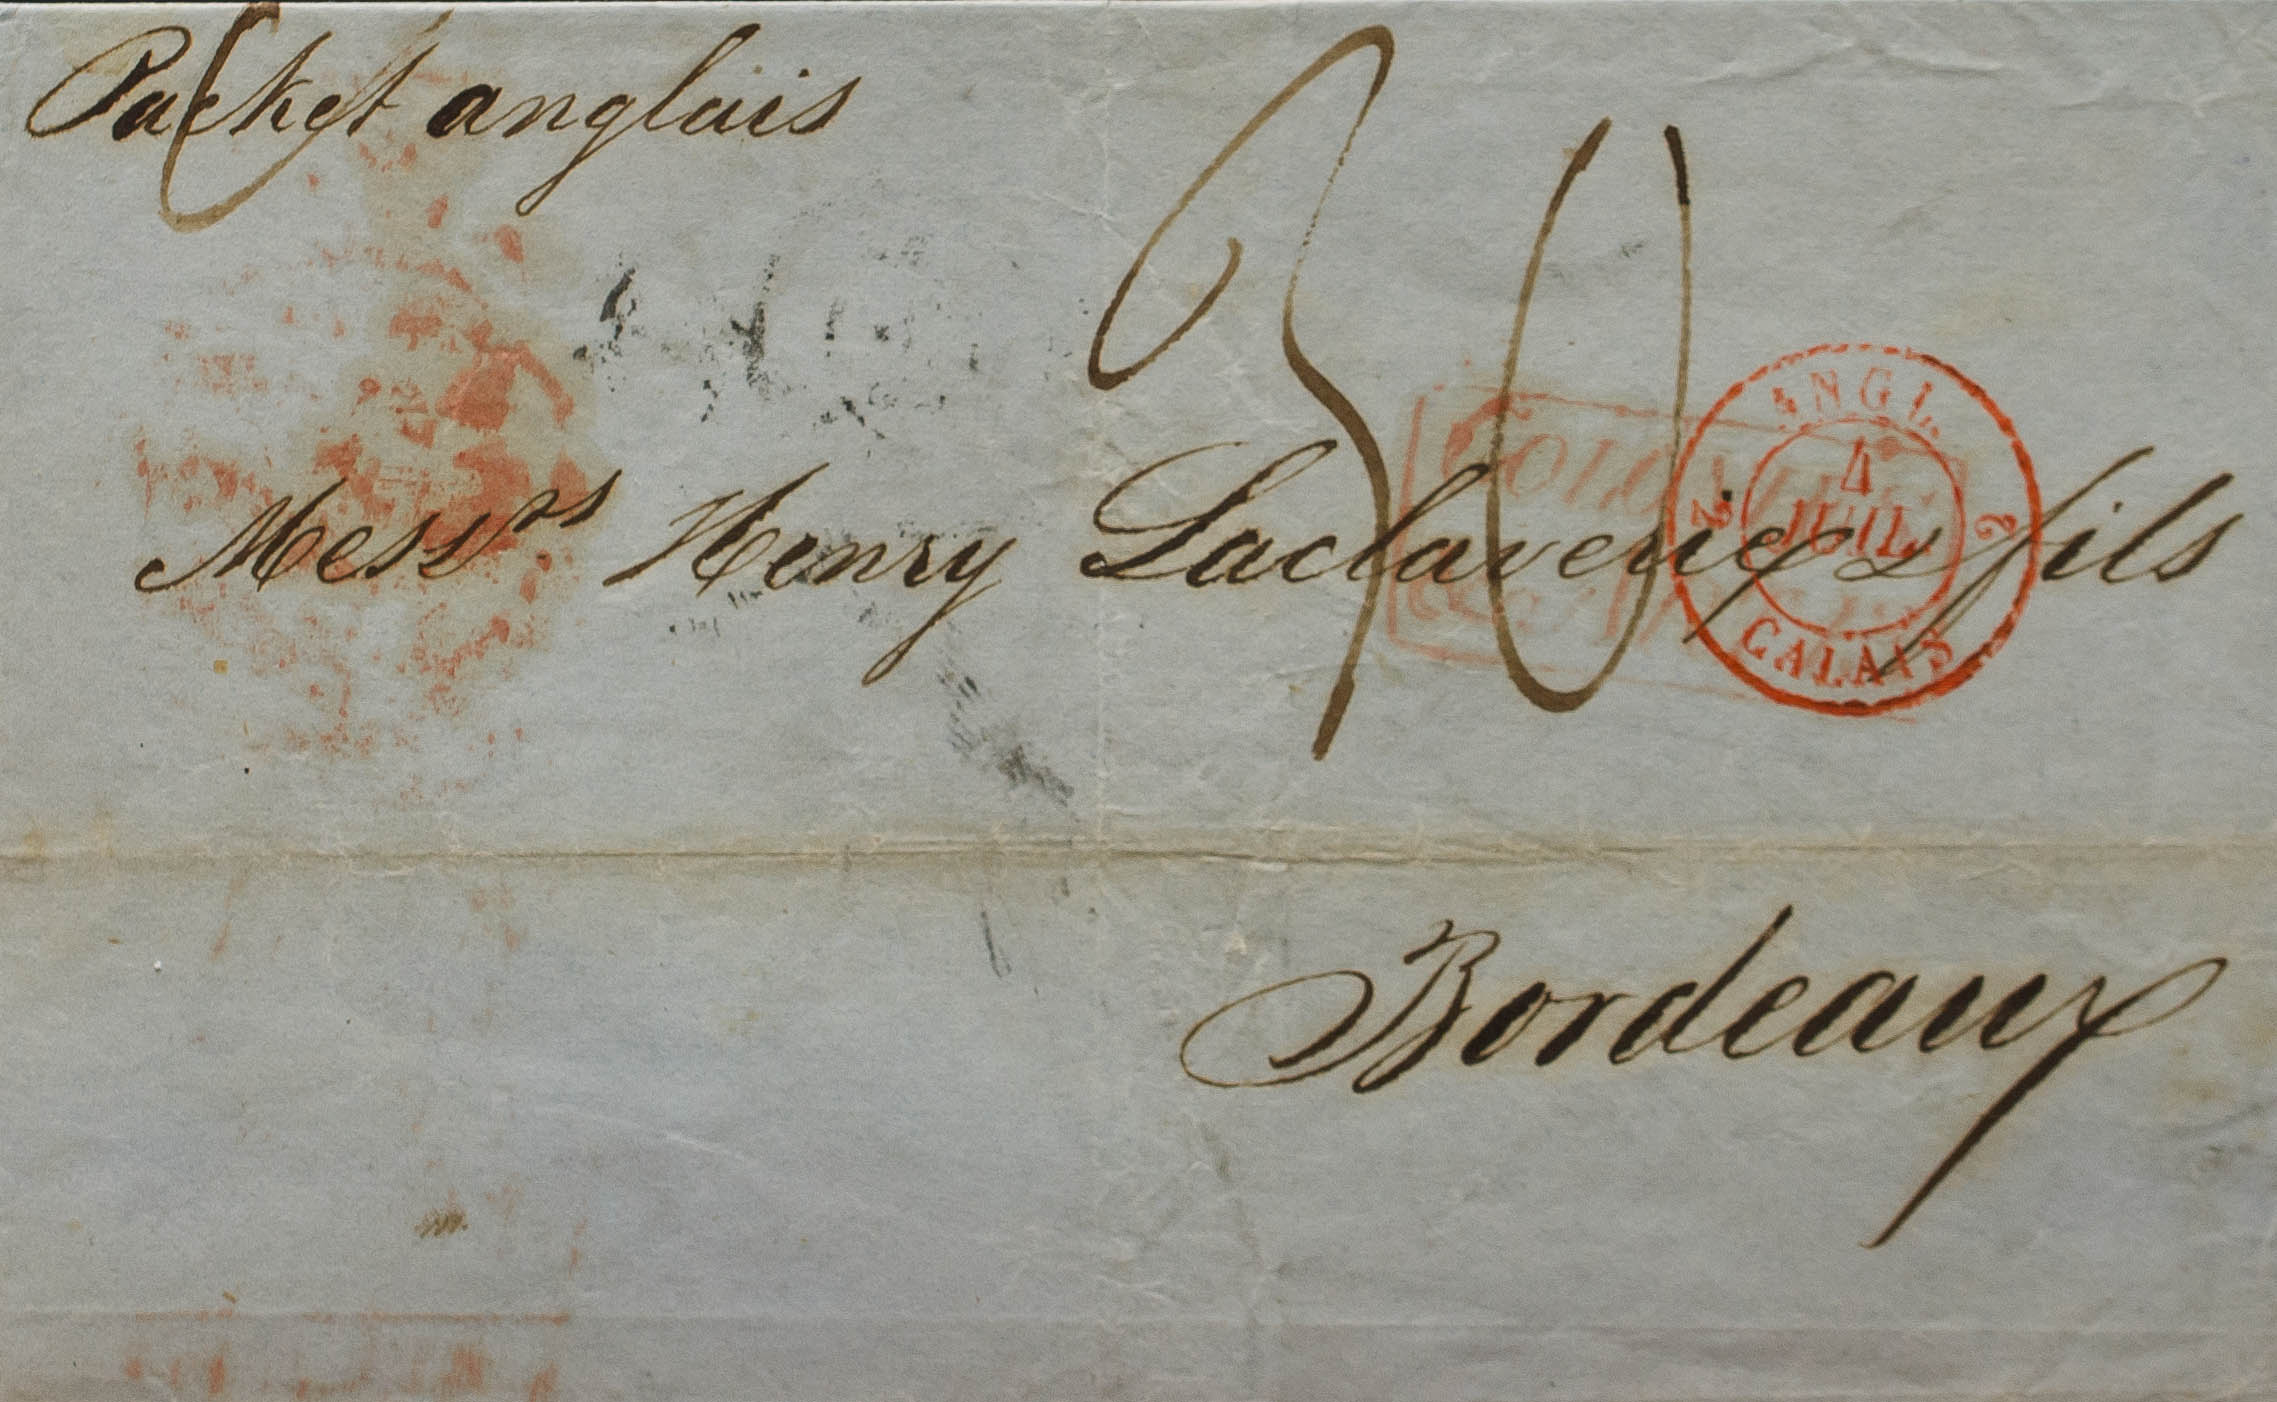 Packet anglais
30
COLONIES
&c. ART.
ANGL.
4
JUIL.
2 2
CALAIS
Messrs Henry Laclaverie & fils
Bordeaux